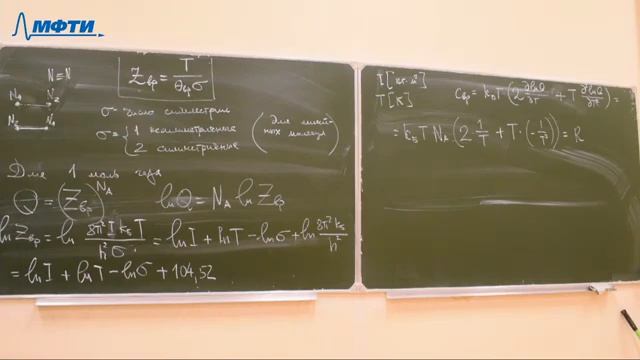 МФТИ
N=N
Z_вр = T / (θ_вр σ)
N₁ N₂
σ - число симметрии
σ = { 1 несимметричные
2 симметричные
( для линейных молекул )
Для 1 моль газа
Q = (Z_вр)^(N_A) ln Q = N_A ln Z_вр
ln Z_вр = ln (8π² I k_Б T) / (h² σ) = ln I + ln T − ln σ + ln (8π² k_Б) / h²
= ln I + ln T − ln σ + 104,52
I [кг·м²]
T [K]
C_вр = k_Б T (2 ∂lnQ/∂T + T ∂²lnQ/∂T²) =
= k_Б T N_A (2 1/T + T·(−1/T²)) = R